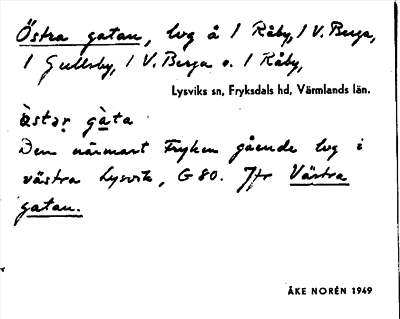 Östra gatan, lvg å 1 Råby, 1 V. Berga,
1 Gullsby, 1 V. Berga o. 1 Råby,
Lysviks sn, Fryksdals hd, Värmlands län.
ö̀stər gàta
Den närmast Fryken gående lvg i
västra Lysvik, G 80. Jfr Västra
gatan.
ÅKE NORÉN 1949